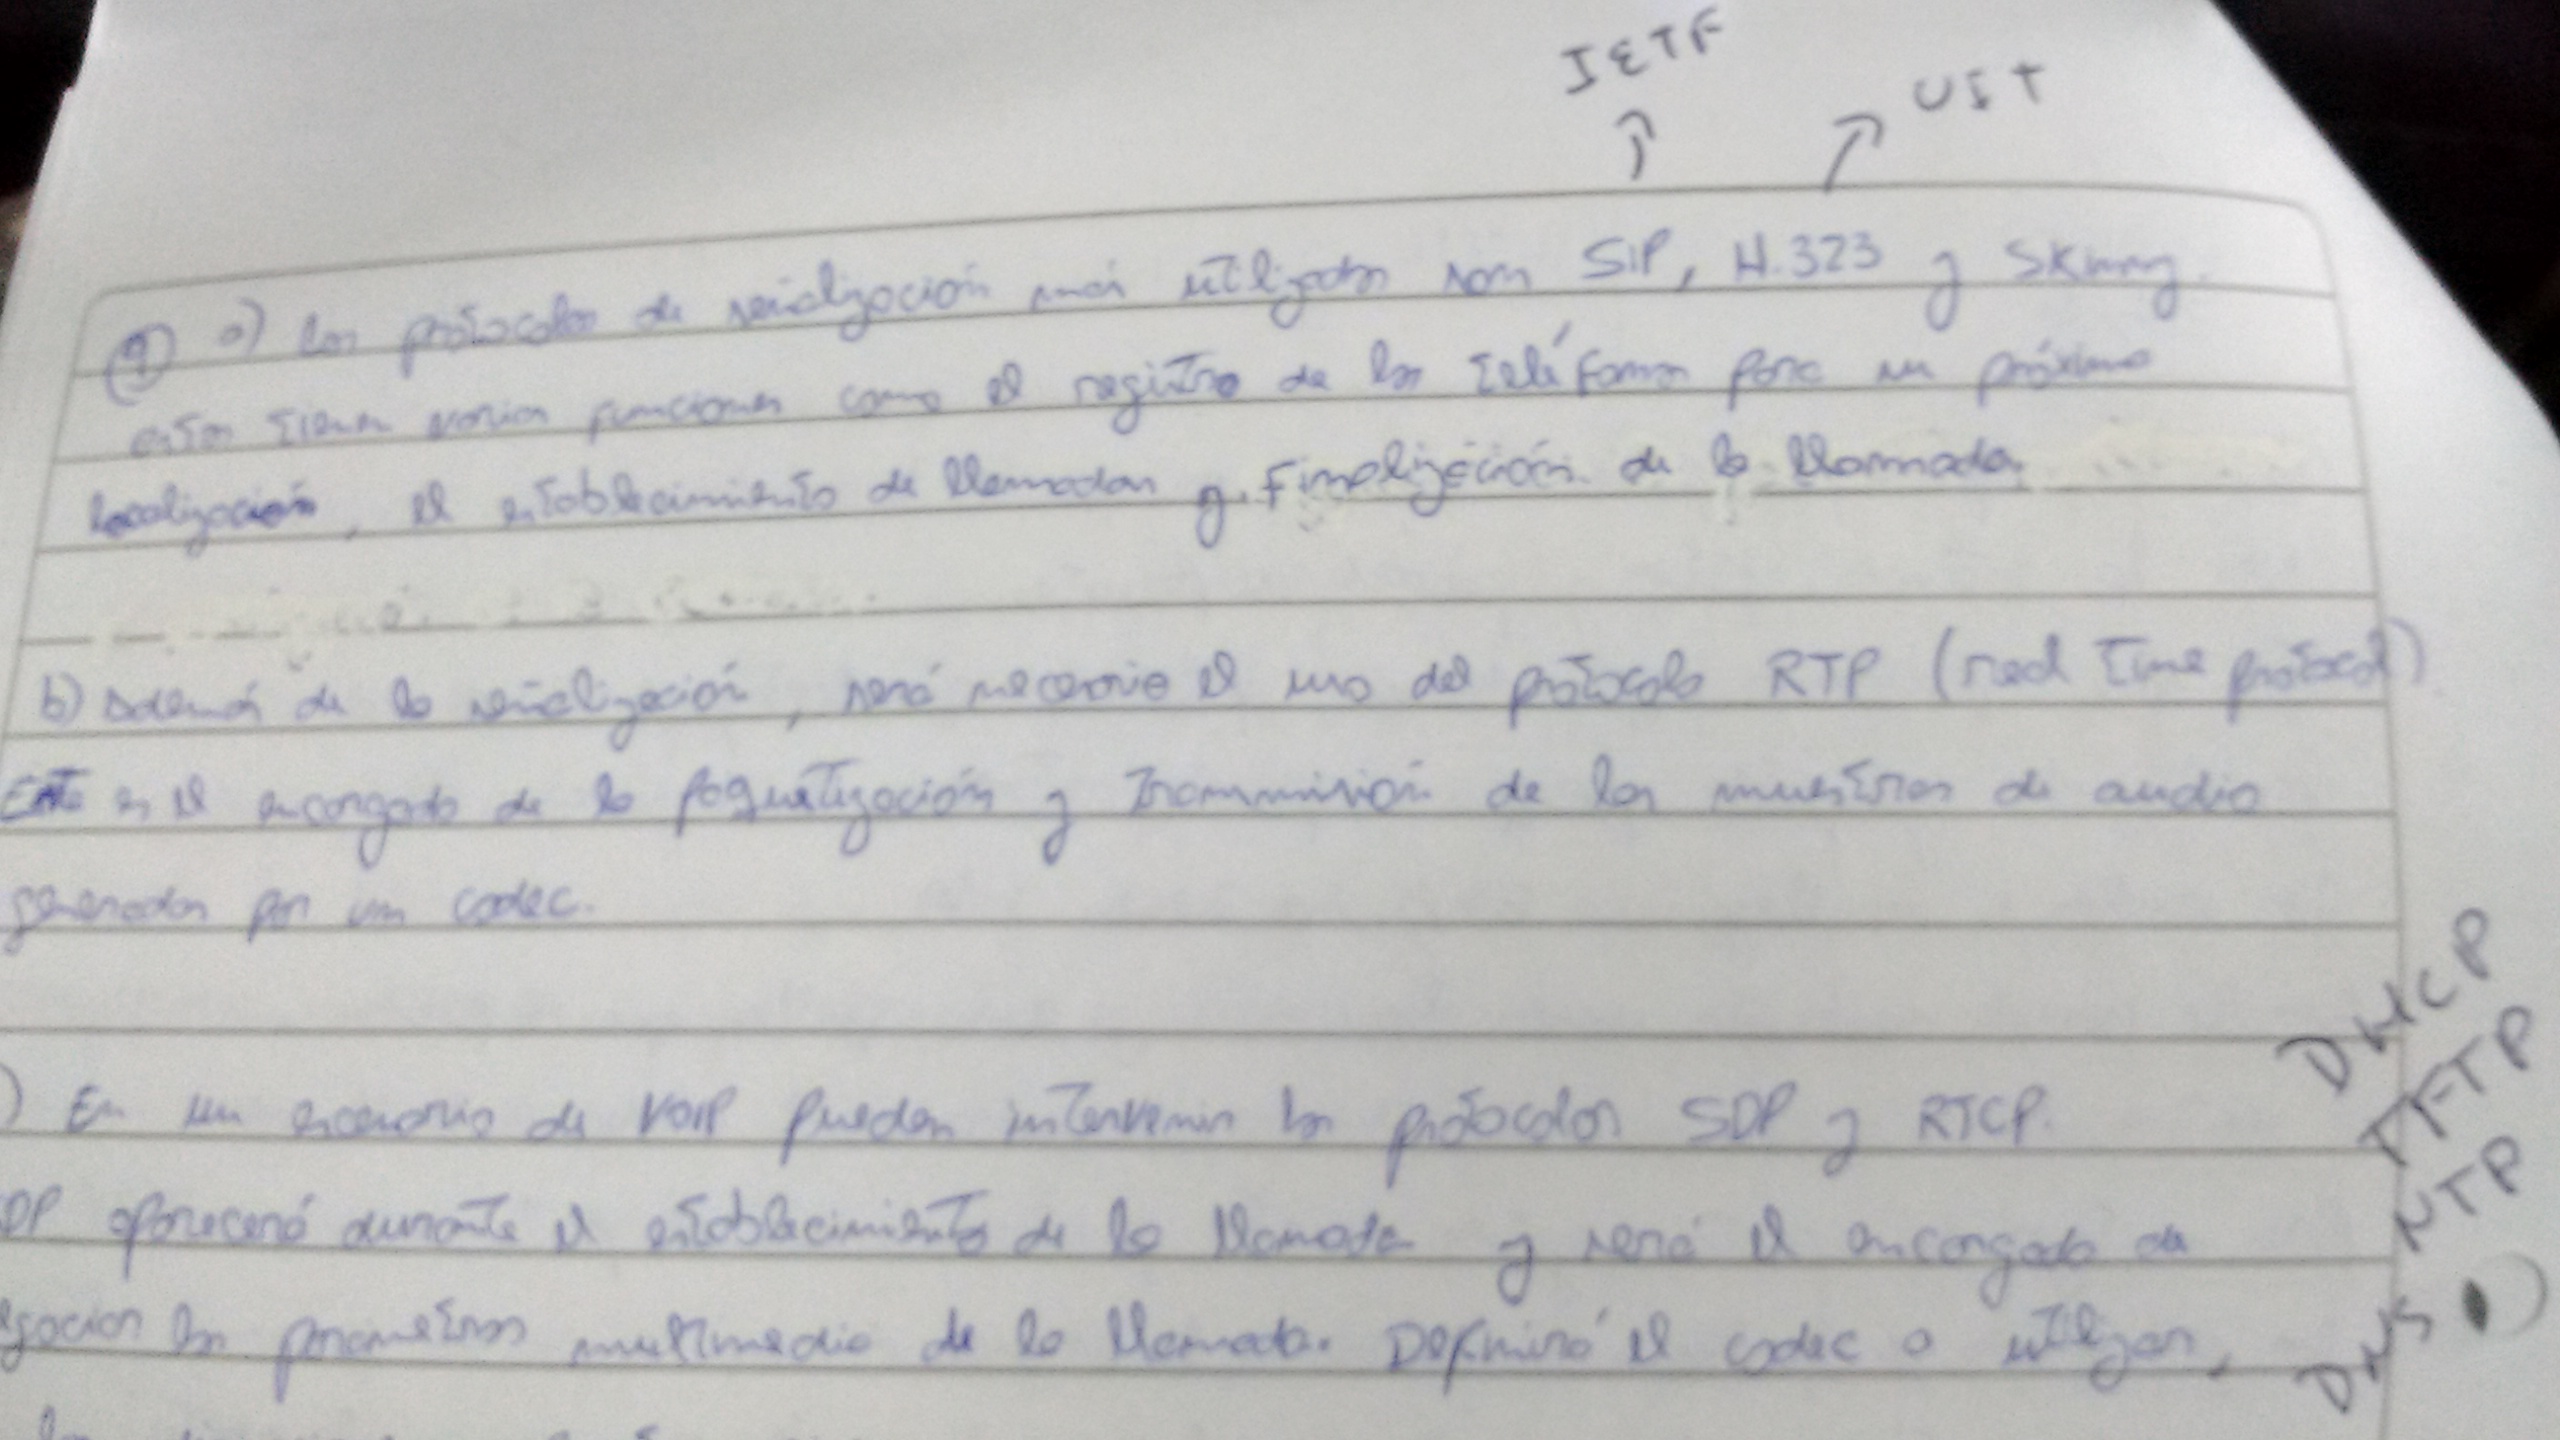 IETF
UIT
9) a) Los protocolos de señalización más utilizados son SIP, H.323 y Skinny.
estos tienen varias funciones como el registro de los teléfonos para su próxima
localización, el establecimiento de llamadas y finalización de la llamada.
b) Además de la señalización, será necesario el uso del protocolo RTP (real time protocol)
Este es el encargado de la paquetización y transmisión de las muestras de audio
generadas por un codec.
) En un escenario de VOIP pueden intervenir los protocolos SDP y RTCP.
DP aparecerá durante el establecimiento de la llamada y será el encargado de
los parametros multimedia de la llamada. Definirá el codec a utilizar,
DHCP
TFTP
NTP
DNS )